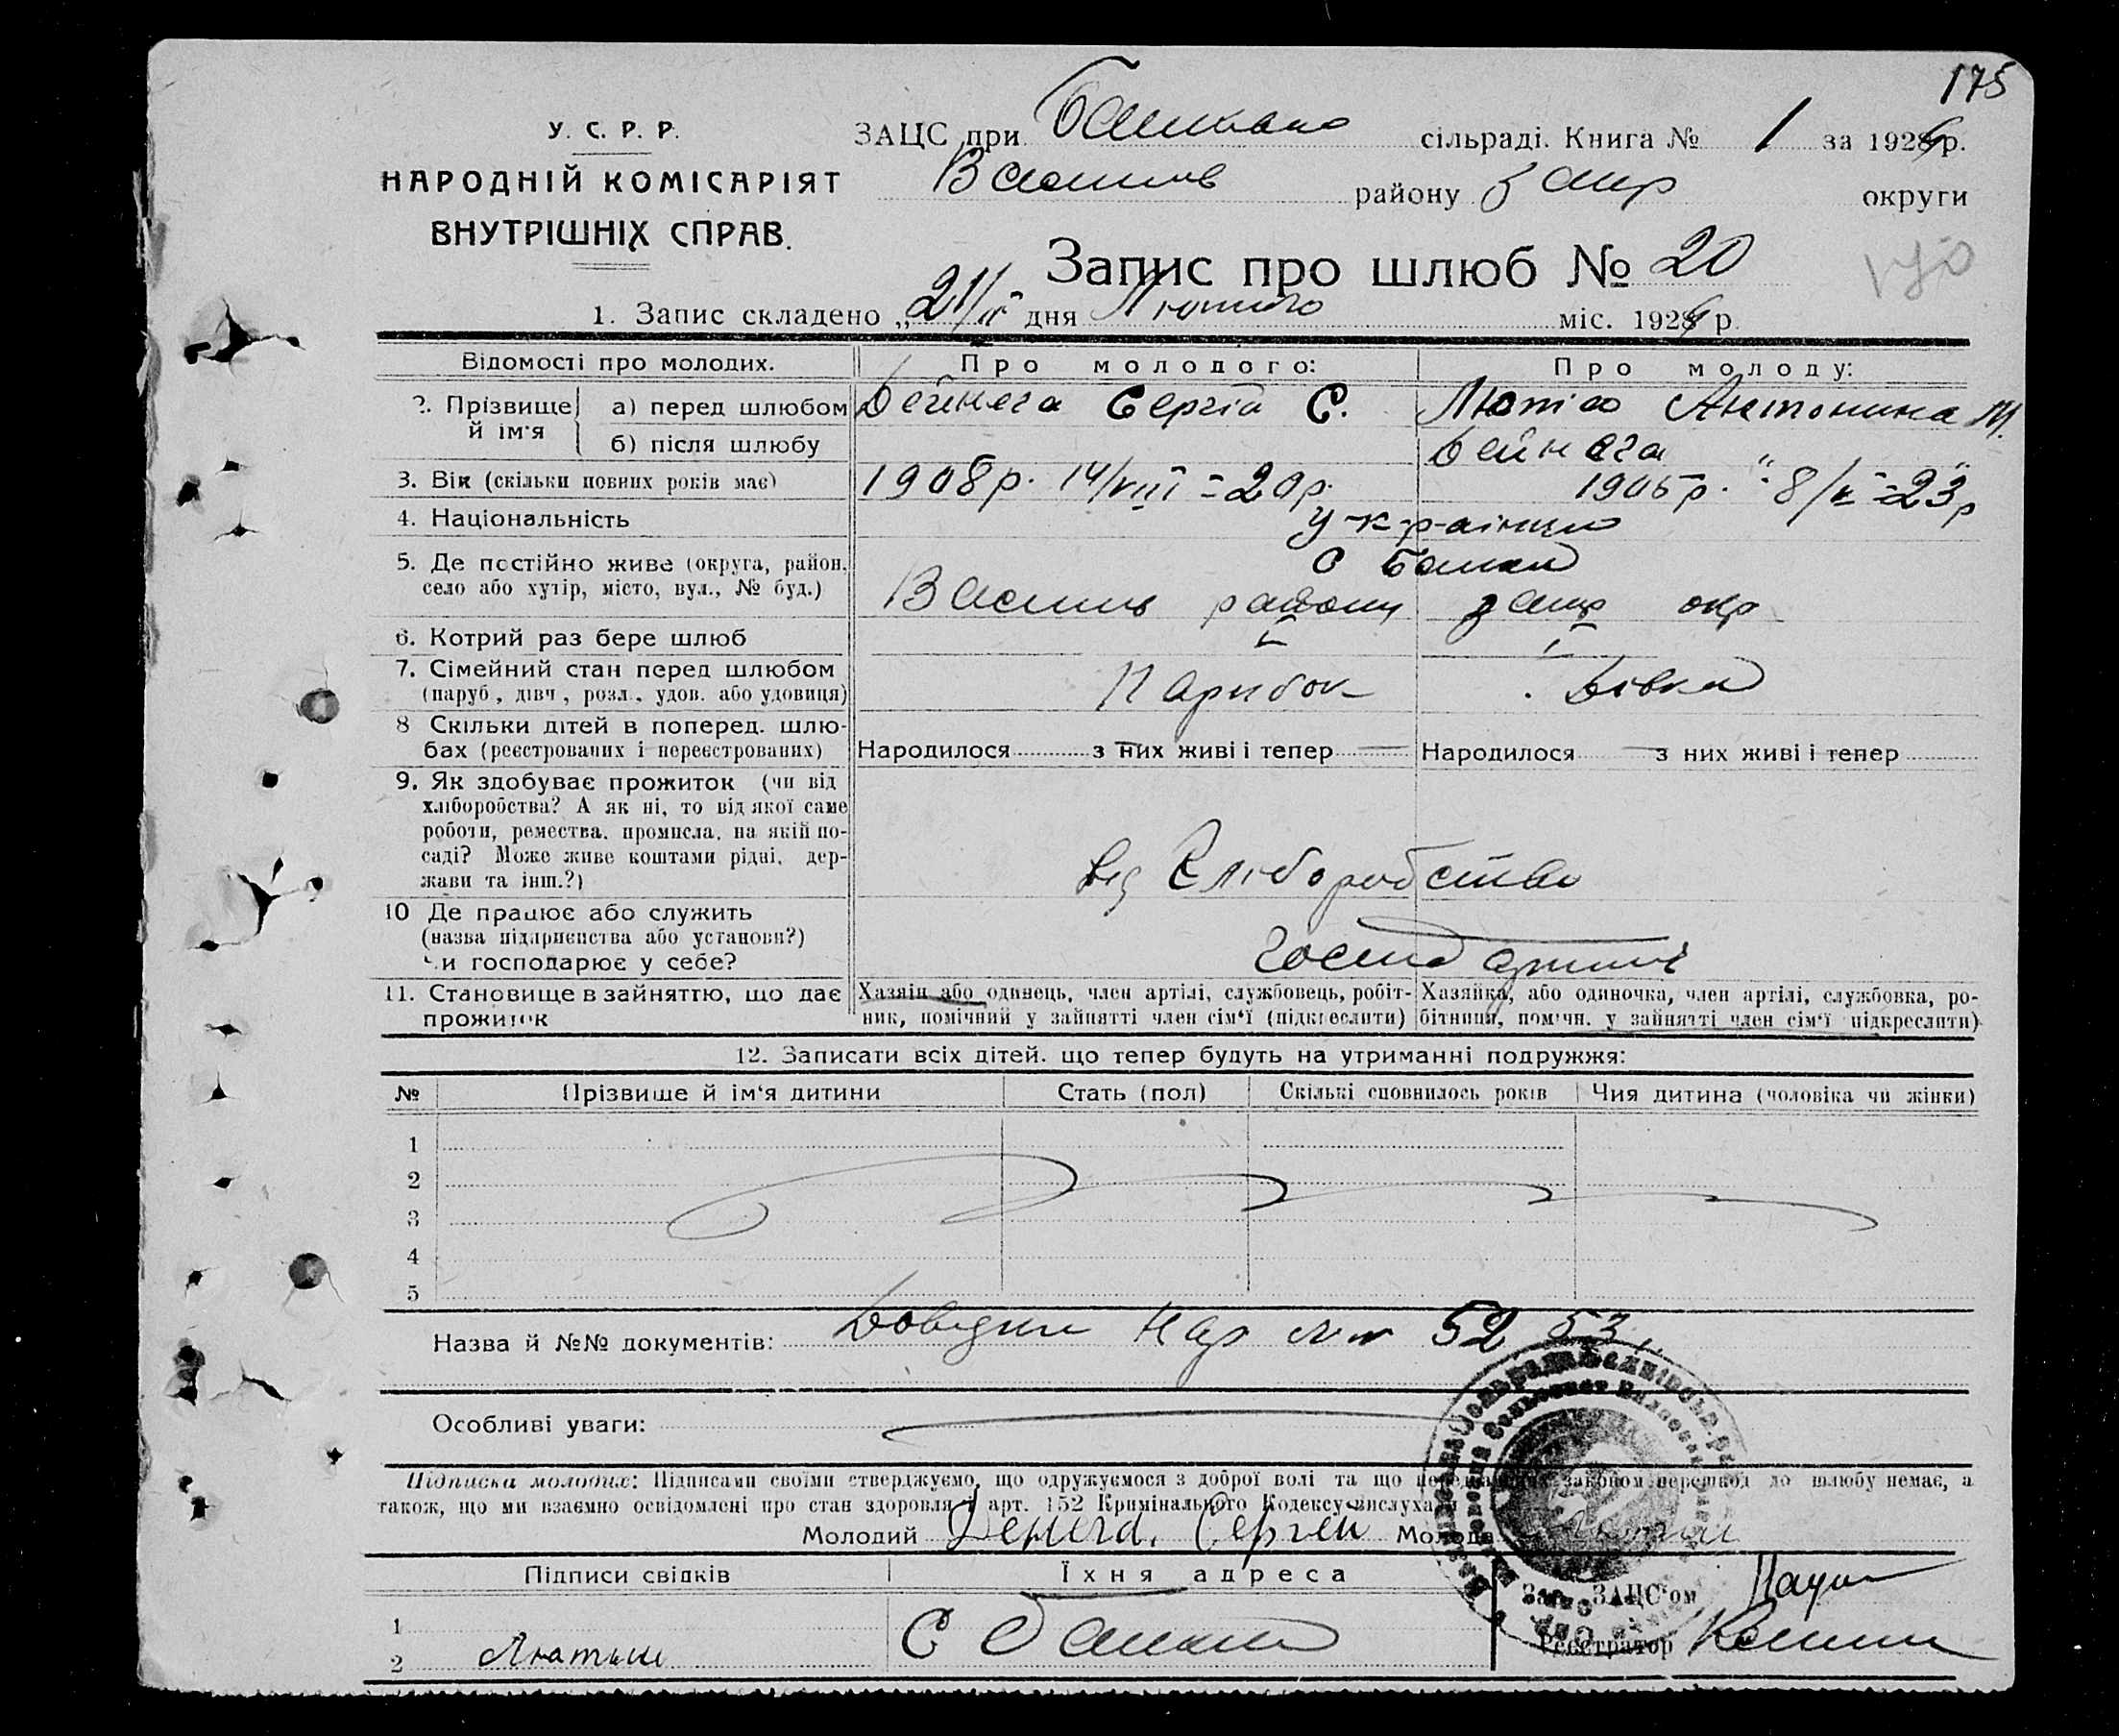 175
У. С. Р. Р.
НАРОДНІЙ КОМІСАРІЯТ
ВНУТРІШНІХ СПРАВ.
ЗАЦС при сільраді. Книга № 1 за 1929 р.
району Запр округи
Запис про шлюб № 20
1. Запис складено „21/II дня Лютого міс. 1929 р.
Відомості про молодих. Про молодого: Про молоду:
2. Прізвище й ім'я а) перед шлюбом Дейнега Сергій С. Антонина М.
б) після шлюбу Дейнега
3. Вік (скільки повних років має) 1908 р. 14/VIII = 20 р. 1905 р. 8/ = 23 р
4. Національність українці
5. Де постійно живе (округа, район, с
село або хутір, місто, вул., № буд.) району запр окр
6. Котрий раз бере шлюб I I
7. Сімейний стан перед шлюбом Парубок Дівка
(паруб., дівч., розл., удов. або удовиця)
8 Скільки дітей в поперед. шлю-
бах (реєстрованих і нереєстрованих) Народилося — з них живі і тепер — Народилося — з них живі і тепер
9. Як здобуває прожиток (чи від
хліборобства? А як ні, то від якої саме
роботи, ремества, промисла, на якій по-
саді? Може живе коштами рідні, дер- від Хліборобства
жави та інш.?)
10 Де працює або служить
(назва підприємства або установи?)
Чи господарює у себе?
11. Становище в зайняттю, що дає Хазяїн або одинець, член артілі, службовець, робіт- Хазяйка, або одиночка, член артілі, службовка, ро-
прожиток ник, помічний у зайнятті член сім'ї (підкреслити) бітниця, помічн. у зайнятті член сім'ї підкреслити)
12. Записати всіх дітей. що тепер будуть на утриманні подружжя:
№ Прізвище й ім'я дитини Стать (пол) Скількі сповнилось років Чия дитина (чоловіка чи жінки)
1
2
3
4
5
Назва й №№ документів: Довідки 52 53
Особливі уваги:
Підписка молодих: Підписами своїми стверджуємо, що одружуємося з доброї волі та що законом перешкод до шлюбу немає, а
також, що ми взаємно освідомлені про стан здоровля і арт. 152 Кримінального Кодексу вислухали
Молодий Сергей Молода
Підписи свідків Їхня адреса Зав. ЗАЦС'ом
1
2 с Реєстратор